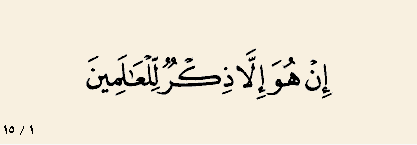 إِنْ هُوَ إِلَّا ذِكْرٌ لِّلْعَٰلَمِينَ
١٥ / ١